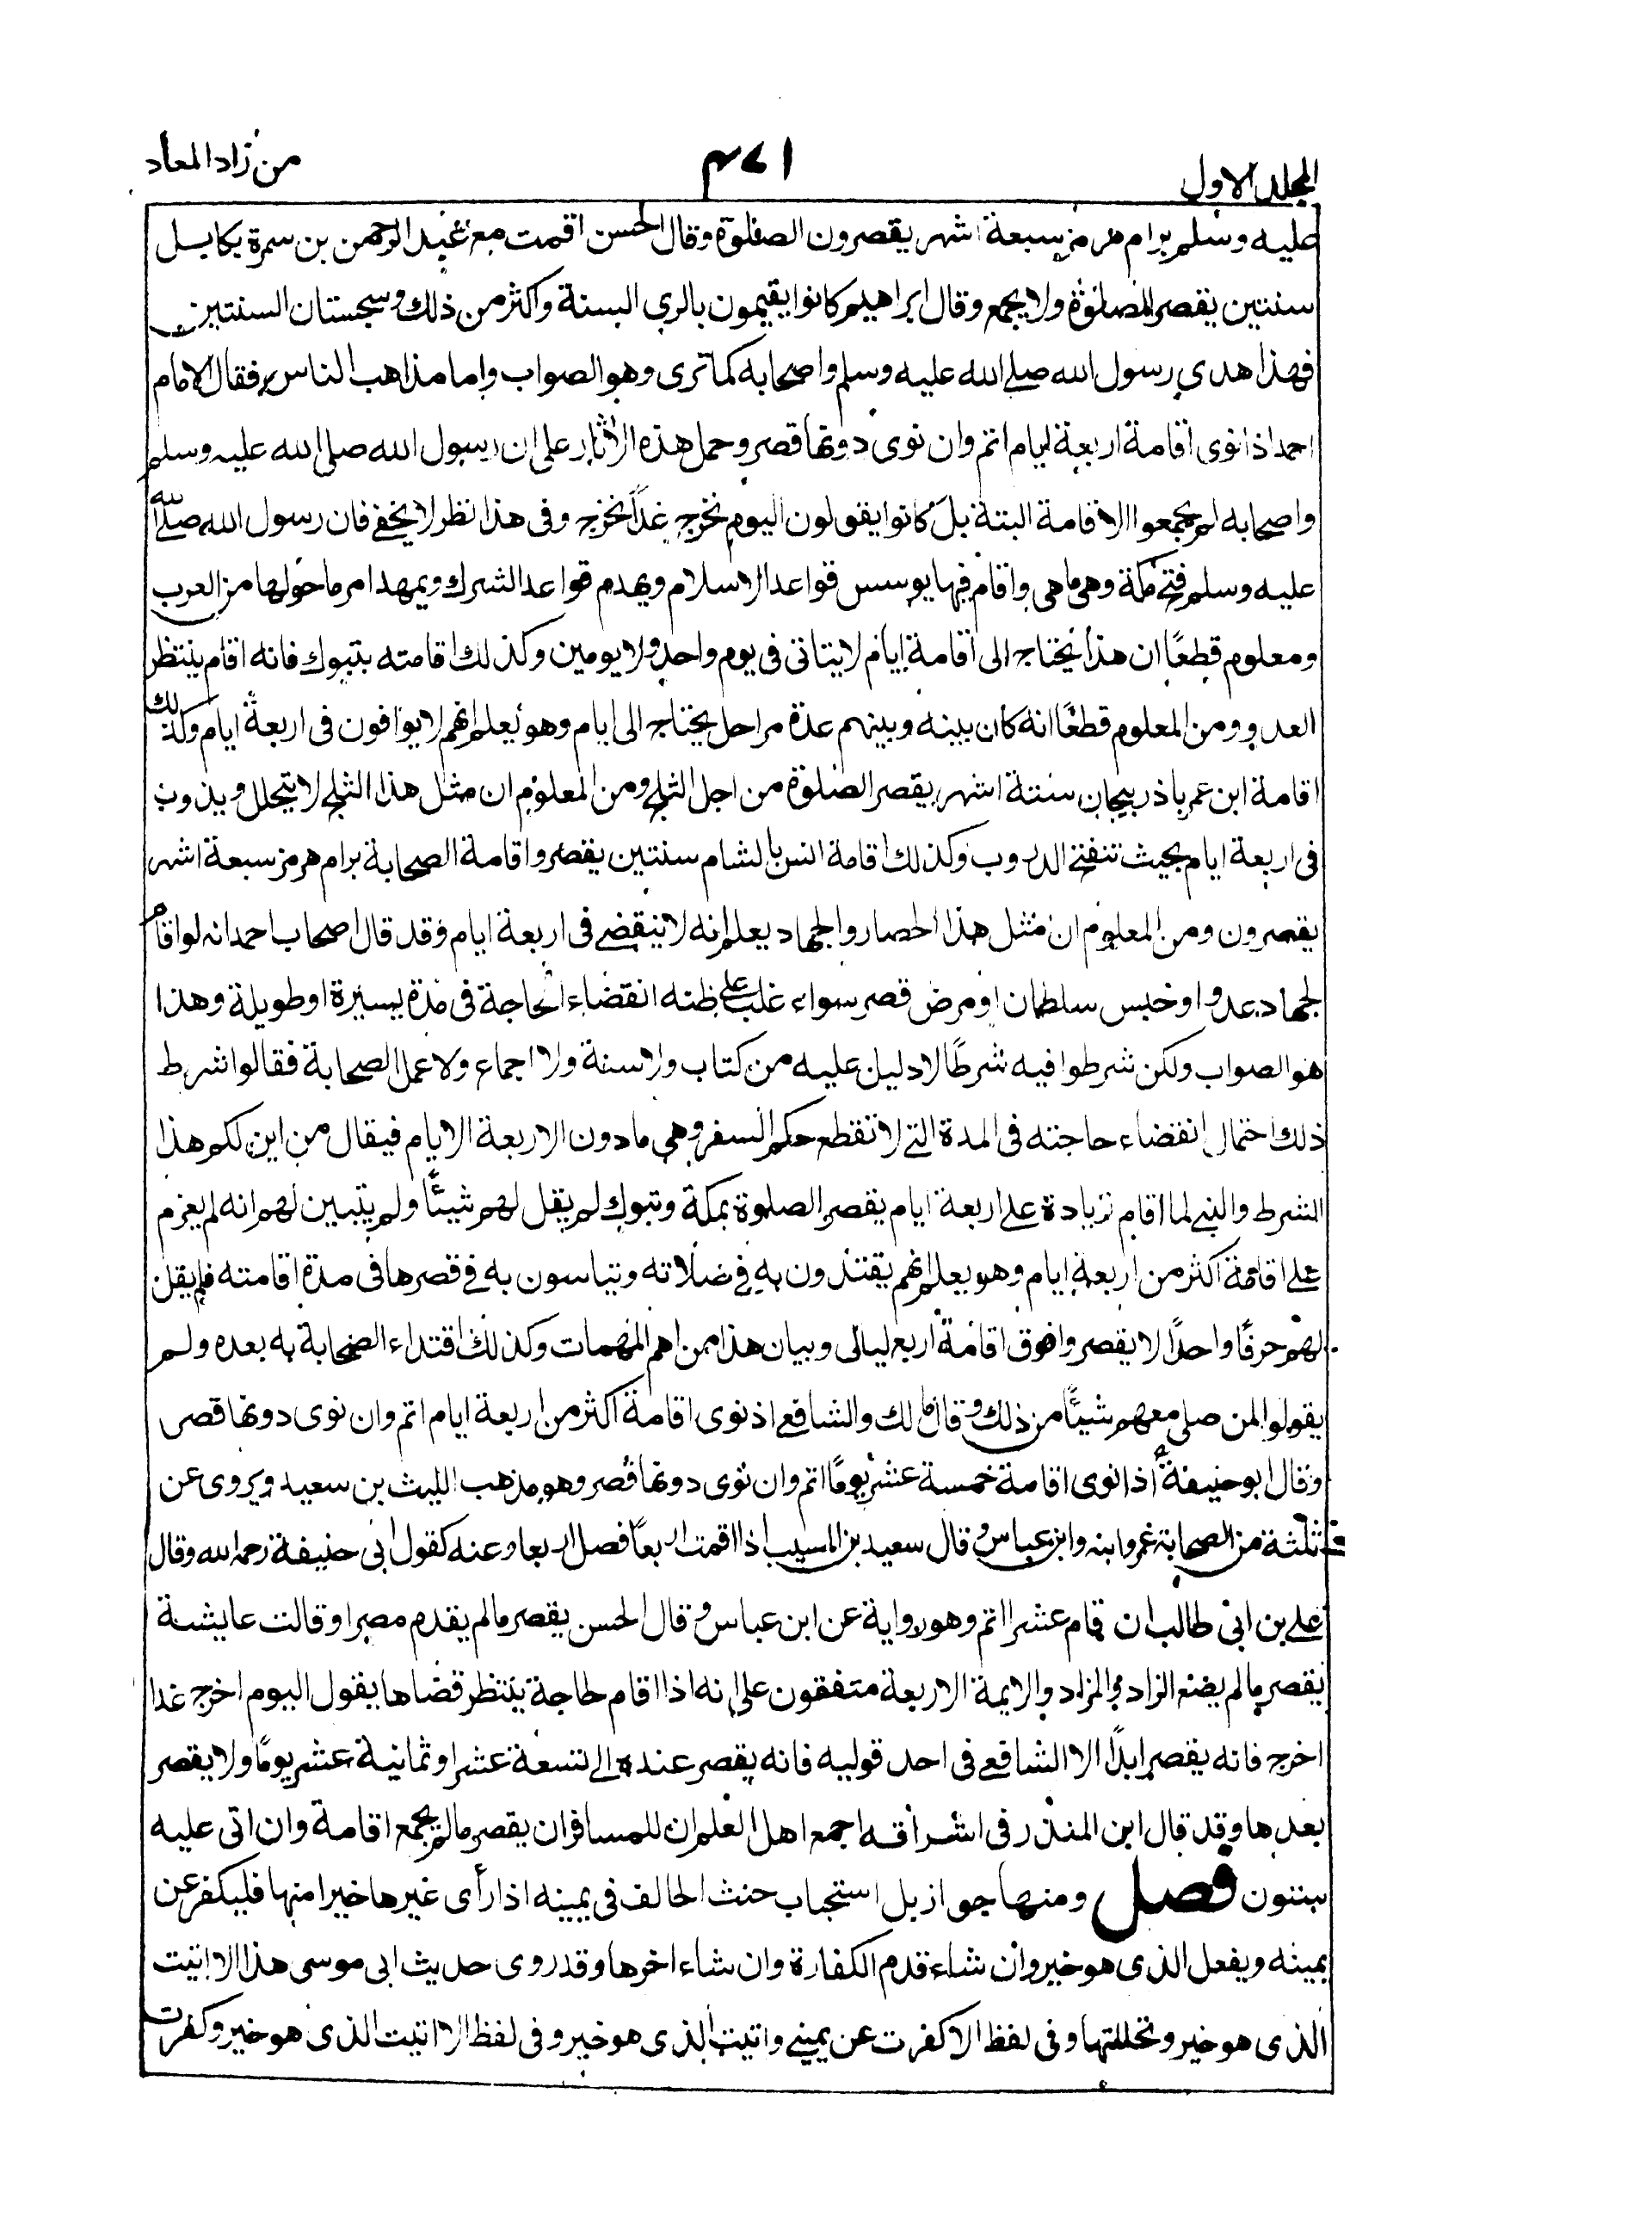 المجلد الاول
٤٧١
من زاد المعاد
عليه وسلم برام هرمز سبعة اشهر يقصرون الصلوة وقال الحسن اقمت مع عبد الرحمن بن سمرة بكابل
سنتين يقصر الصلوة ولا يجمع وقال ابراهيم كانوا يقيمون بالري السنة واكثر من ذلك وسجستان السنتين
فهذا هدي رسول الله صلے الله عليه وسلم واصحابه كما ترى وهو الصواب واما مذاهب الناس فقال الامام
احمد اذا نوى اقامة اربعة ايام اتم وان نوى دونها قصر وحمل هذه الاثار على ان رسول الله صلى الله عليه وسلم
واصحابه لم يجمعوا الاقامة البتة بل كانوا يقولون اليوم نخرج غدًا نخرج وفى هذا نظر لا يخفے فان رسول الله صلے الله
عليه وسلم فتح مكة وهى ما هى واقام فيها يوسس قواعد الاسلام ويهدم قواعد الشرك ويمهد امر ما حولها من العرب
ومعلوم قطعًا ان هذا يحتاج الى اقامة ايام لا يتاتى فى يوم واحد ولا يومين وكذلك اقامته بتبوك فانه اقام ينتظر
العدو ومن المعلوم قطعًا انه كان بينه وبينهم عدة مراحل يحتاج الى ايام وهو يعلم انهم لا يوافون فى اربعة ايام وكذلك
اقامة ابن عمر باذربيجان ستة اشهر يقصر الصلوة من اجل الثلج ومن المعلوم ان مثل هذا الثلج لا يتحلل ويذوب
فى اربعة ايام بحيث تنفتح الدروب وكذلك اقامة انس بالشام سنتين يقصر واقامة الصحابة برام هرمز سبعة اشهر
يقصرون ومن المعلوم ان مثل هذا الحصار والجهاد يعلم انه لا ينقضے فى اربعة ايام وقد قال اصحاب احمد انه لو اقام
لجهاد عدو او حبس سلطان او مرض قصر سواء غلب على ظنه انقضاء الحاجة فى مدة يسيرة او طويلة وهذا
هو الصواب ولكن شرطوا فيه شرطًا لا دليل عليه من كتاب ولا سنة ولا اجماع ولا عمل الصحابة فقالوا شرط
ذلك احتمال انقضاء حاجته فى المدة التے لا تقطع حكم السفر وهي ما دون الاربعة الايام فيقال من اين لكم هذا
الشرط والنبے لما اقام زيادة علے اربعة ايام يقصر الصلوة بمكة وتبوك لم يقل لهم شيئًا ولم يتبين لهم انه لم يعزم
علے اقامة اكثر من اربعة ايام وهو يعلم انهم يقتدون به فے صلاته ويتاسون به فے قصرها فى مدة اقامته فلم يقل
لهم حرفًا واحدًا لا يقصر وا فوق اقامة اربع ليالى وبيان هذا من اهم المهمات وكذلك اقتداء الصحابة به بعده ولم
يقولوا لمن صلى معهم شيئًا من ذلك وقال مالك والشافعے اذ نوى اقامة اكثر من اربعة ايام اتم وان نوى دونها قصر
وقال ابو حنيفةؒ اذا نوى اقامة خمسة عشر يومًا اتم وان نوى دونها قصر وهو مذهب الليث بن سعيد ويروى عن
ثلثة من الصحابة عمر وابنه وابن عباس وقال سعيد بن المسيب اذا اقمت اربعًا فصل اربعا وعنه كقول ابى حنيفة رحمه الله وقال
علے بن ابى طالب ان قام عشرا اتم وهو رواية عن ابن عباس وقال الحسن يقصر ما لم يقدم مصرا وقالت عايشة
يقصر ما لم يضع الزاد والمزاد والايمة الاربعة متفقون على انه اذا اقام لحاجة ينتظر قضاها يقول اليوم اخرج غدا
اخرج فانه يقصر ابدًا الا الشافعے فى احد قوليه فانه يقصر عنده الے تسعة عشر او ثمانية عشر يومًا ولا يقصر
بعدها وقد قال ابن المنذر فى اشرافه اجمع اهل العلم ان للمسافر ان يقصر ما لم يجمع اقامة وان اتى عليه
سنون فصل ومنها جواز بل استحباب حنث الحالف فى يمينه اذا رأى غيرها خيرا منها فليكفر عن
يمينه ويفعل الذى هو خير وان شاء قدم الكفارة وان شاء اخرها وقد روى حديث ابى موسى هذا الا اتيت
الذى هو خير وتحللتها وفى لفظ الا كفرت عن يمينے واتيت الذى هو خير وفى لفظ الا اتيت الذى هو خير وكفرت